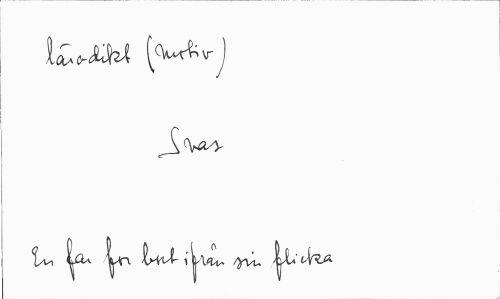 lärodikt (motiv)
Svar
En far for bort ifrån sin flicka